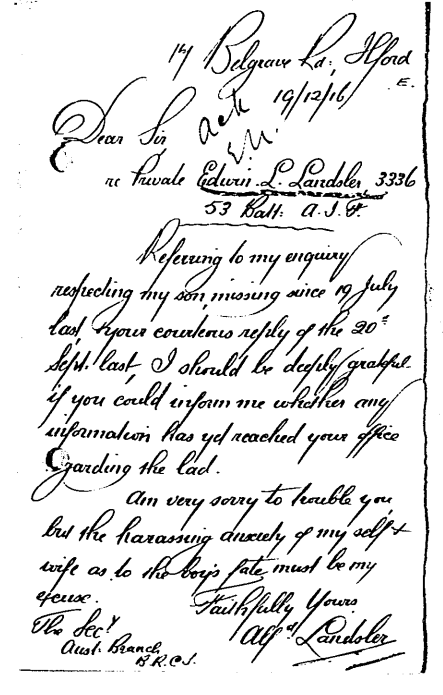 14 Belgrave Rd, Ilford
E.
19/12/16
ack
Dear Sir
re Private Edwin. L. Landsler 3336
53 Batt: A. I. F.
Referring to my enquiry
respecting my son, missing since 19 July
last, & your courteous reply of the 20th
Sept. last, I should be deeply grateful
if you could inform me whether any
information has yet reached your office
regarding the lad.
Am very sorry to trouble you,
but the harassing anxiety of my self &
wife as to the boy's fate must be my
excuse.
Faithfully Yours
Alfd Landsler
The Secy
Aust: Branch
B.R.C.S.